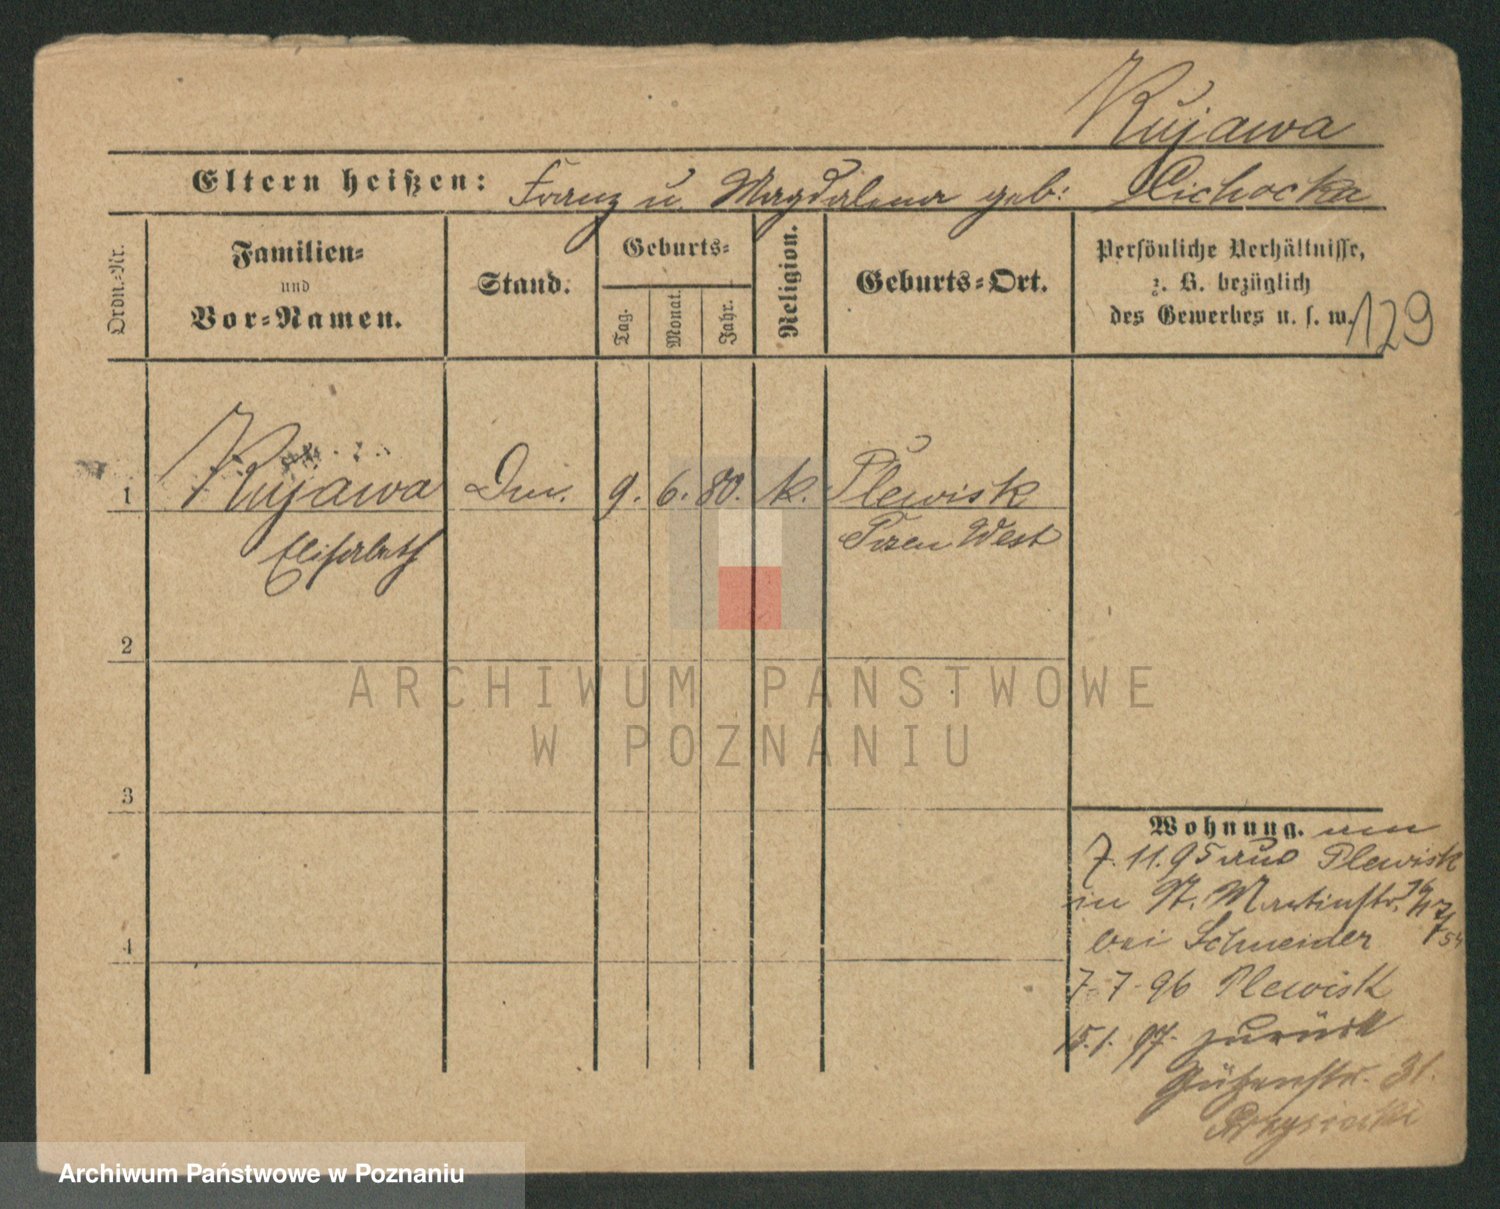 Kujawa
Eltern heißen: Franz u. Magdalena geb: Cichocka
Ordn.-Nr.
Familien-
und
Vor-Namen.
Stand.
Geburts-
Tag.
Monat.
Jahr.
Religion.
Geburts-Ort.
Persönliche Verhältnisse,
z. B. bezüglich
des Gewerbes u. s. w.
129
1 Kujawa Dm. 9. 6. 80. k. Plewisk
Elisabeth Posen West
2
ARCHIWUM PAŃSTWOWE
W POZNANIU
3
Wohnung.
7.11.95 aus Plewisk
in St. Martinstr.
bei Schneider
4
7-7-96 Plewisk
15.1.97. zurück
31.
Archiwum Państwowe w Poznaniu